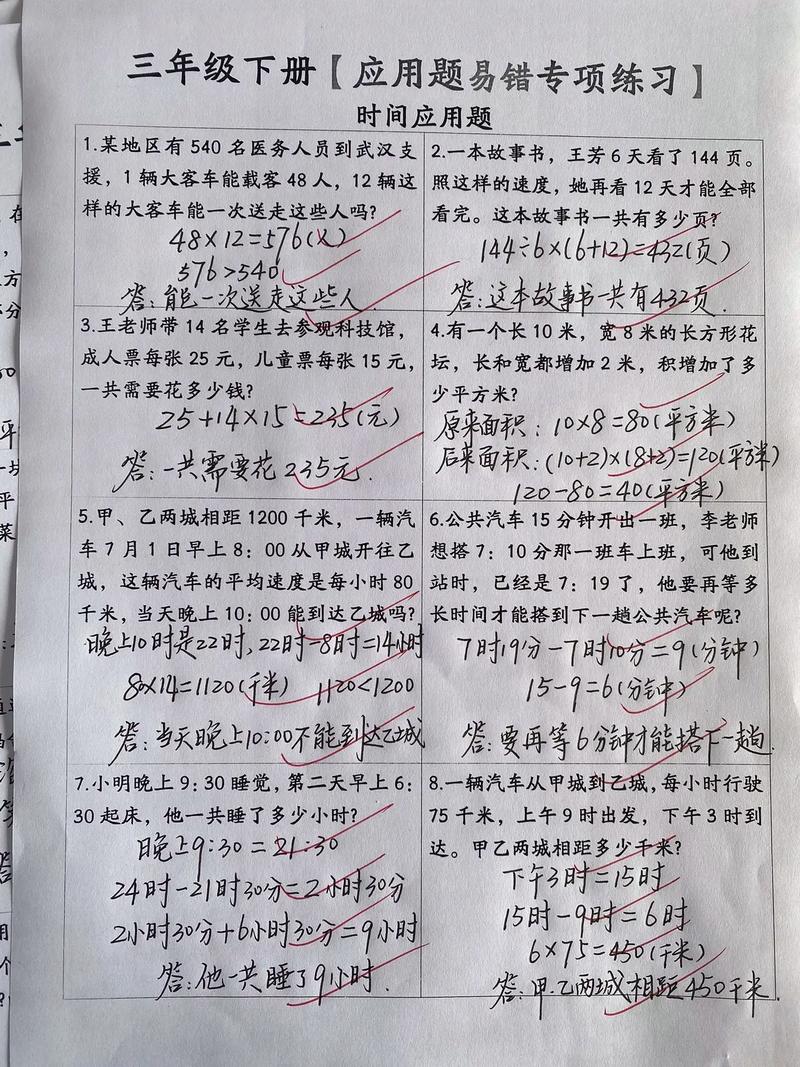 三年级下册【应用题易错专项练习】
时间应用题
1.某地区有540名医务人员到武汉支
援，1辆大客车能载客48人，12辆这
样的大客车能一次送走这些人吗?
48×12=576(人)
576>540
答:能一次送走这些人.
2.一本故事书，王芳6天看了144页。
照这样的速度，她再看12天才能全部
看完。这本故事书一共有多少页?
144÷6×(6+12)=432(页)
答:这本故事书一共有432页.
3.王老师带14名学生去参观科技馆，
成人票每张25元，儿童票每张15元，
一共需要花多少钱?
25+14×15=235(元)
答:一共需要花235元.
4.有一个长10米，宽8米的长方形花
坛，长和宽都增加2米，积增加了多
少平方米?
原来面积:10×8=80(平方米)
后来面积:(10+2)×(8+2)=120(平方米)
120-80=40(平方米)
5.甲、乙两城相距1200千米，一辆汽
车7月1日早上8：00从甲城开往乙
城，这辆汽车的平均速度是每小时80
千米，当天晚上10：00能到达乙城吗?
晚上10时是22时,22时-8时=14小时
80×14=1120(千米) 1120<1200
答:当天晚上10:00不能到达乙城
6.公共汽车15分钟开出一班，李老师
想搭7：10分那一班车上班，可他到
站时，已经是7：19了，他要再等多
长时间才能搭到下一趟公共汽车呢?
7时19分-7时10分=9(分钟)
15-9=6(分钟)
答:要再等6分钟才能搭下一趟.
7.小明晚上9：30睡觉，第二天早上6：
30起床，他一共睡了多少小时?
晚上9:30=21:30
24时-21时30分=2小时30分
2小时30分+6小时30分=9小时
答:他一共睡了9小时.
8.一辆汽车从甲城到乙城，每小时行驶
75千米，上午9时出发，下午3时到
达。甲乙两城相距多少千米?
下午3时=15时
15时-9时=6时
6×75=450(千米)
答:甲.乙两城相距450千米.